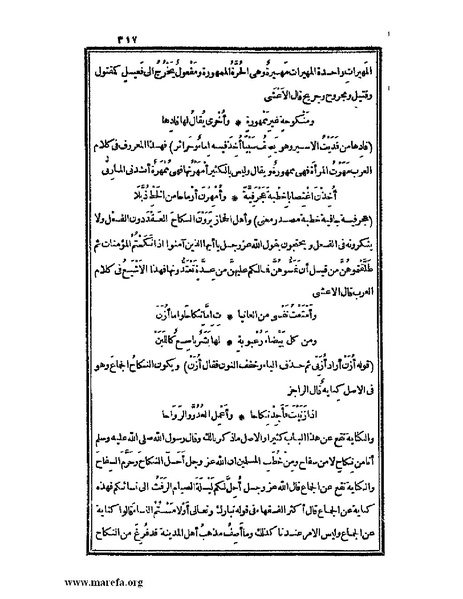 ٣١٧
المهيرات واحدة المهيرات مهيرة وهى الحرة الممهورة ومفعول يخرج الى فعيل كمقتول
وقتيل ومجروح وجريح قال الاعشى
ومنكوحة غير ممهورة * وأخرى يقال لها فادها
(فادها من فديت الاسير وهو يصف سبيا أخذ فيه اماء وحرائر) فهذا المعروف فى كلام
العرب مهرت المرأة فهى ممهورة ويقال وليس بالكثير أمهرتها فهى ممهرة أنشدنى المازنى
أخذن اغتصابا خطبة عجرفية * وأمهرن أرماحا من الخط ذبلا
(عجرفية جافية خطبة مصدر معنى) وأهل الحجاز يرون النكاح العقد دون الفعل ولا
ينكرونه فى الفعل ويحتجون بقول الله عز وجل يا أيها الذين آمنوا اذا نكحتم المؤمنات ثم
طلقتموهن من قبل أن تمسوهن فمالكم عليهن من عدة تعتدونها فهذا الاشيع فى كلام
العرب قال الاعشى
وأمتعت نفسى من الغانيا * ت إما نكاحا وإما أزن
ومن كل بيضاء رعبوبة * لها بشر ناصع كاللبن
(قوله أزن أراد أزنى ثم حذف الياء وخفف النون فقال أزن) ويكون النكاح الجماع وهو
فى الاصل كناية قال الراجز
اذا زنيت فأجد نكاحا * وأعمل الغدو والرواحا
والكناية تقع عن هذا الباب كثيرا والاصل ما ذكرنا لك وقال رسول الله صلى الله عليه وسلم
أنا من نكاح لا من سفاح ومن خطب المسلمين ان الله عز وجل أحل النكاح وحرم السفاح
والكناية تقع عن الجماع قال الله عز وجل أحل لكم ليلة الصيام الرفث الى نسائكم فهذه
كناية عن الجماع قال أكثر الفقهاء فى قوله تبارك وتعالى أو لامستم النساء قالوا كناية
عن الجماع وليس الامر عندنا كذلك وما أصف مذهب أهل المدينة قد فرغ من النكاح
www.marefa.org